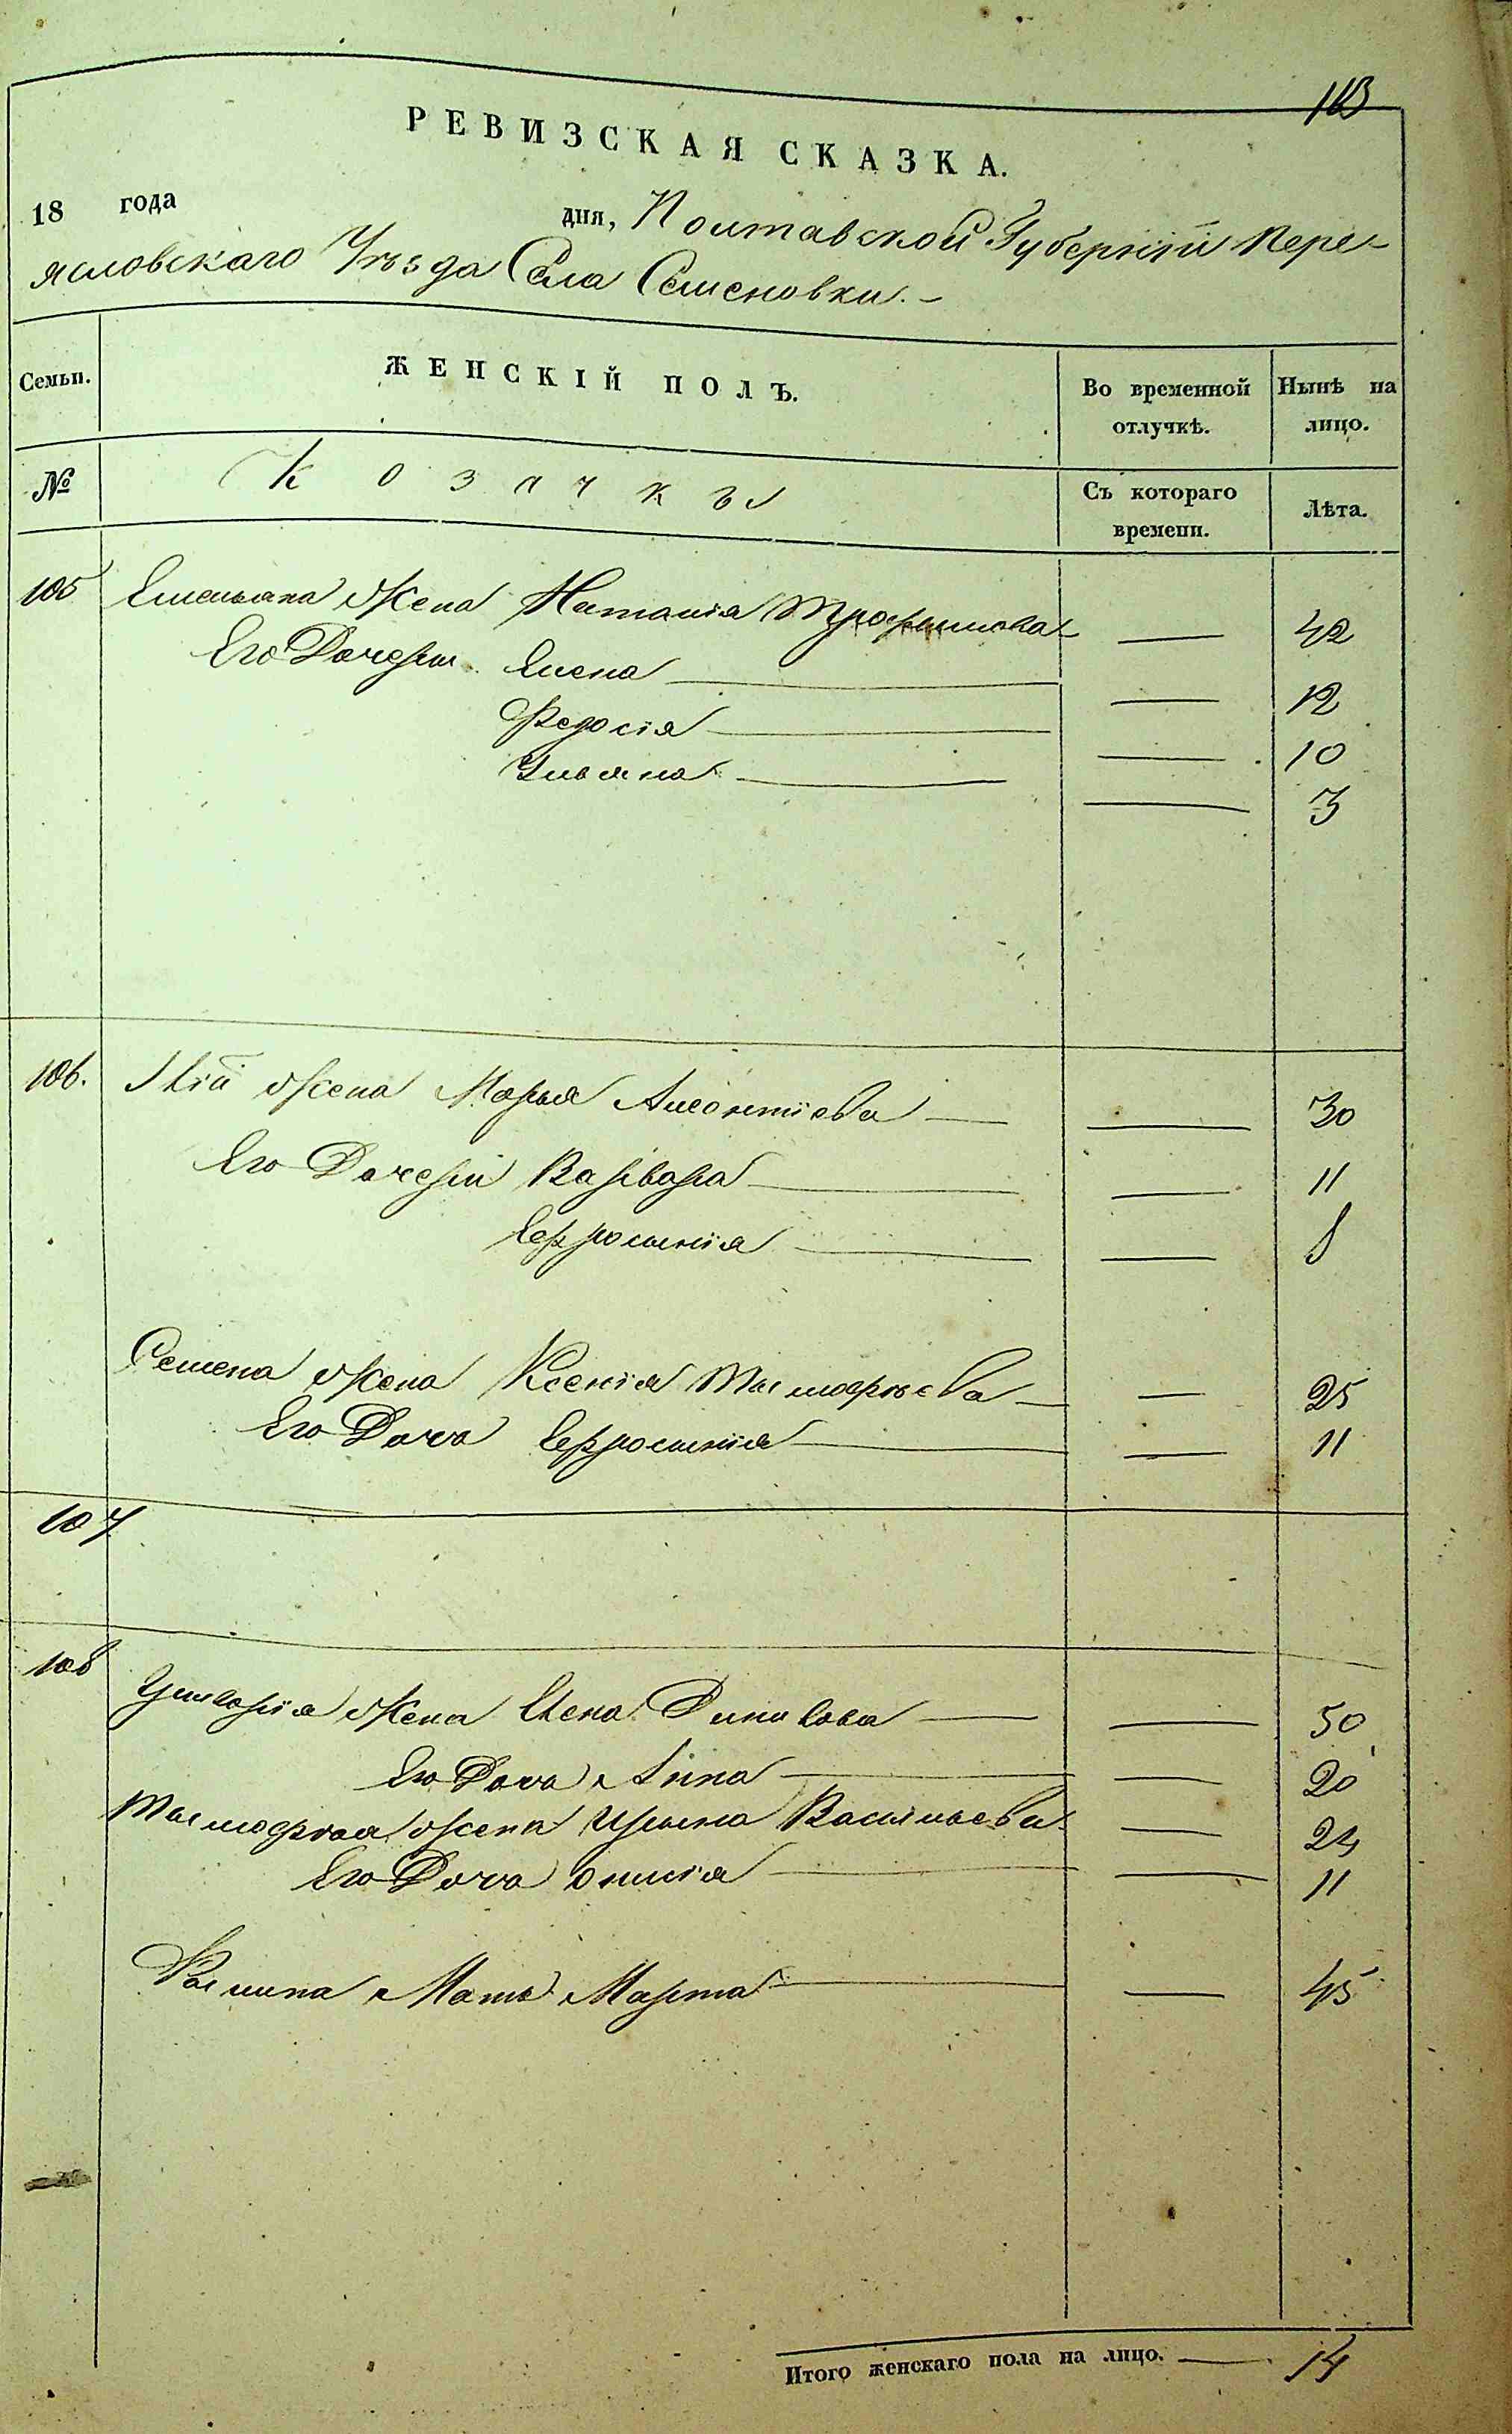 113
РЕВИЗСКАЯ СКАЗКА.
18 года дня, Полтавской Губерніи Пере-
ясловскаго Уѣзда Села Семеновки.
Семьи. ЖЕНСКІЙ ПОЛЪ. Во временной отлучкѣ. Нынѣ на лицо.
№ Козачкы Съ котораго времени. Лѣта.
105 Емельяна Жена Наталія Трофимова — 42
Его Дочери Елена — 12
Федосія — 10
Ульяна — 3
106. Жена Марья Леонтіева — 30
Его Дочери Варвара — 11
Ефросинія — 8
Семена Жена Ксенія Тимофѣева — 25
Его Дочь Ефросинія — 11
107
108 Григорія Жена Елена Данилова — 50
Его Дочь Анна — 20
Тимофея Жена Ирина Васильева — 24
Его Дочь — 11
Мать Марта — 45
Итого женскаго пола на лицо. — 14